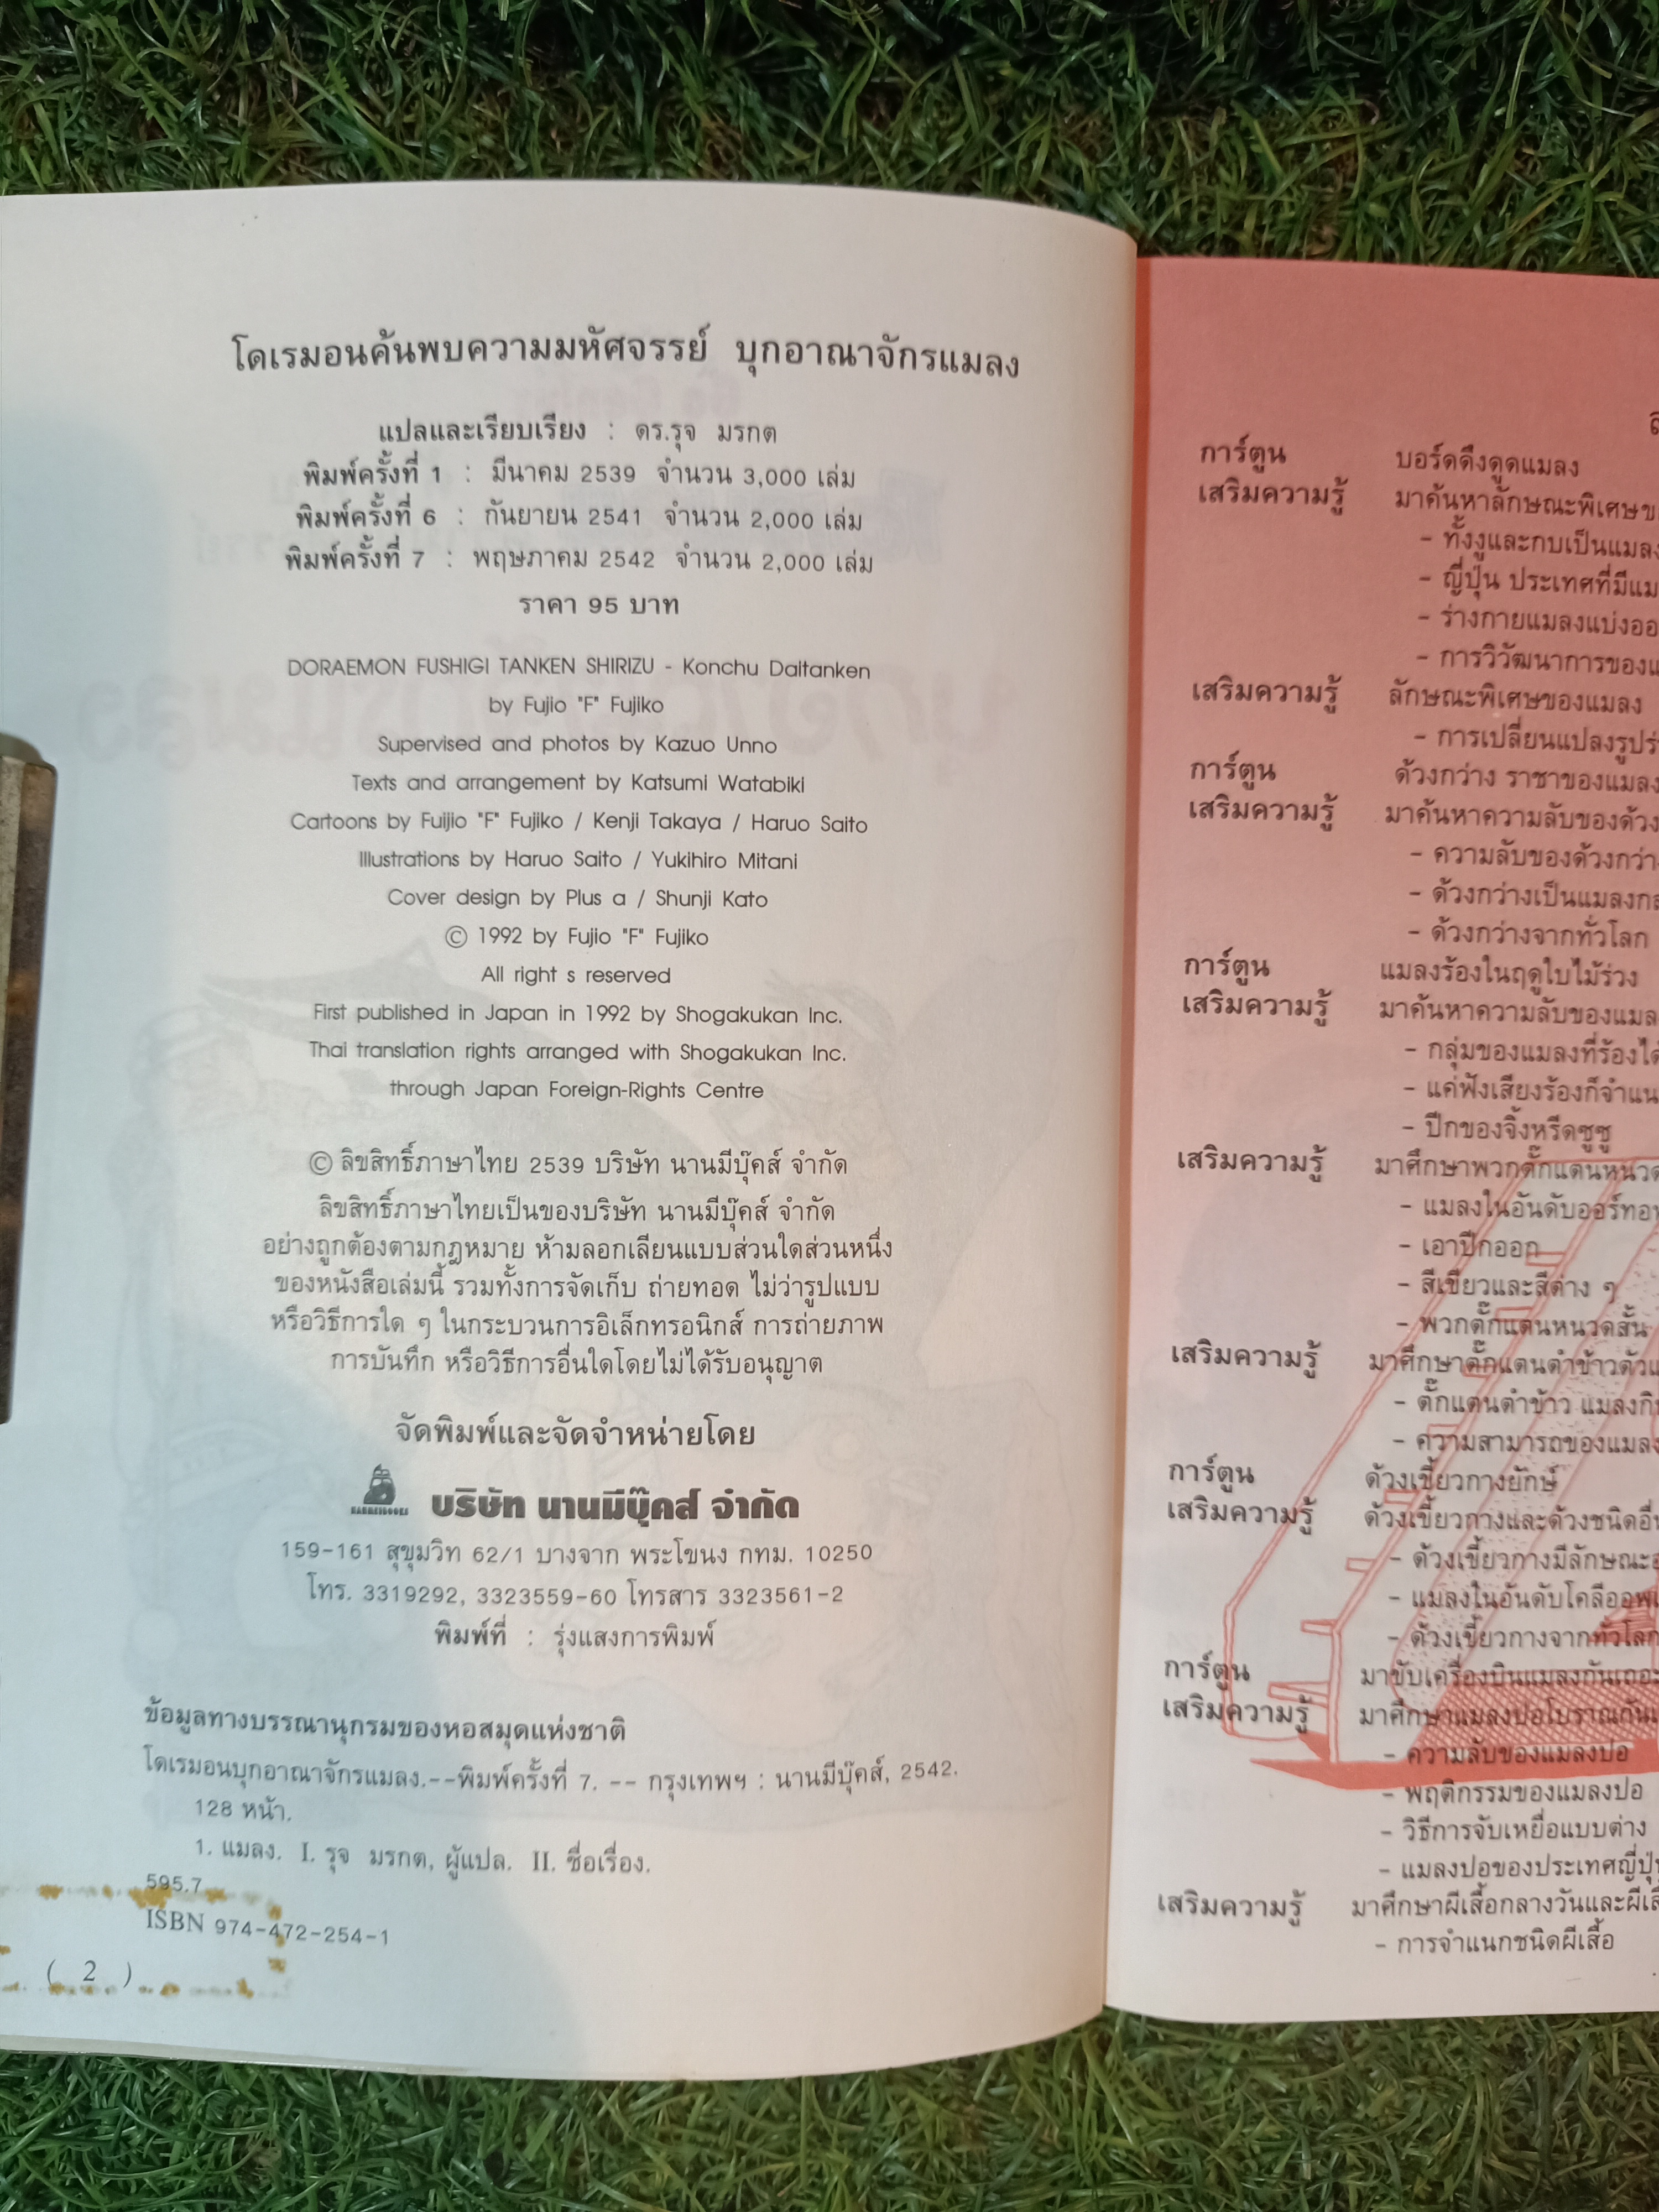 โดเรมอนค้นพบความมหัศจรรย์ บุกอาณาจักรแมลง
แปลและเรียบเรียง : ดร.รุจ มรกต
พิมพ์ครั้งที่ 1 : มีนาคม 2539 จำนวน 3,000 เล่ม
พิมพ์ครั้งที่ 6 : กันยายน 2541 จำนวน 2,000 เล่ม
พิมพ์ครั้งที่ 7 : พฤษภาคม 2542 จำนวน 2,000 เล่ม
ราคา 95 บาท
DORAEMON FUSHIGI TANKEN SHIRIZU - Konchu Daitanken
by Fujio "F" Fujiko
Supervised and photos by Kazuo Unno
Texts and arrangement by Katsumi Watabiki
Cartoons by Fuijio "F" Fujiko / Kenji Takaya / Haruo Saito
Illustrations by Haruo Saito / Yukihiro Mitani
Cover design by Plus a / Shunji Kato
© 1992 by Fujio "F" Fujiko
All right s reserved
First published in Japan in 1992 by Shogakukan Inc.
Thai translation rights arranged with Shogakukan Inc.
through Japan Foreign-Rights Centre
© ลิขสิทธิ์ภาษาไทย 2539 บริษัท นานมีบุ๊คส์ จำกัด
ลิขสิทธิ์ภาษาไทยเป็นของบริษัท นานมีบุ๊คส์ จำกัด
อย่างถูกต้องตามกฎหมาย ห้ามลอกเลียนแบบส่วนใดส่วนหนึ่ง
ของหนังสือเล่มนี้ รวมทั้งการจัดเก็บ ถ่ายทอด ไม่ว่ารูปแบบ
หรือวิธีการใด ๆ ในกระบวนการอิเล็กทรอนิกส์ การถ่ายภาพ
การบันทึก หรือวิธีการอื่นใดโดยไม่ได้รับอนุญาต
จัดพิมพ์และจัดจำหน่ายโดย
NANMEEBOOKS บริษัท นานมีบุ๊คส์ จำกัด
159-161 สุขุมวิท 62/1 บางจาก พระโขนง กทม. 10250
โทร. 3319292, 3323559-60 โทรสาร 3323561-2
พิมพ์ที่ : รุ่งแสงการพิมพ์
ข้อมูลทางบรรณานุกรมของหอสมุดแห่งชาติ
โดเรมอนบุกอาณาจักรแมลง.--พิมพ์ครั้งที่ 7. -- กรุงเทพฯ : นานมีบุ๊คส์, 2542.
128 หน้า.
1. แมลง. I. รุจ มรกต, ผู้แปล. II. ชื่อเรื่อง.
595.7
ISBN 974-472-254-1
( 2 )
การ์ตูน บอร์ดดึงดูดแมลง
เสริมความรู้ มาค้นหาลักษณะพิเศษข
- ทั้งงูและกบเป็นแมลง
- ญี่ปุ่น ประเทศที่มีแม
- ร่างกายแมลงแบ่งออ
- การวิวัฒนาการของแ
เสริมความรู้ ลักษณะพิเศษของแมลง
- การเปลี่ยนแปลงรูปร่
การ์ตูน ด้วงกว่าง ราชาของแมลง
เสริมความรู้ มาค้นหาความลับของด้วง
- ความลับของด้วงกว่าง
- ด้วงกว่างเป็นแมลงกล
- ด้วงกว่างจากทั่วโลก
การ์ตูน แมลงร้องในฤดูใบไม้ร่วง
เสริมความรู้ มาค้นหาความลับของแมล
- กลุ่มของแมลงที่ร้องได้
- แค่ฟังเสียงร้องก็จำแน
- ปีกของจิ้งหรีดซูซู
เสริมความรู้ มาศึกษาพวกตั๊กแตนหนวด
- แมลงในอันดับออร์ทอ
- เอาปีกออก
- สีเขียวและสีต่าง ๆ
- พวกตั๊กแตนหนวดสั้น
เสริมความรู้ มาศึกษาตั๊กแตนตำข้าวตัวแ
- ตั๊กแตนตำข้าว แมลงกิ
- ความสามารถของแมลง
การ์ตูน ด้วงเขี้ยวกางยักษ์
เสริมความรู้ ด้วงเขี้ยวกางและด้วงชนิดอื่น
- ด้วงเขี้ยวกางมีลักษณะ
- แมลงในอันดับโคลีออพ
- ด้วงเขี้ยวกางจากทั่วโลก
การ์ตูน มาขับเครื่องบินแมลงกันเถอะ
เสริมความรู้ มาศึกษาแมลงปอโบราณกัน
- ความลับของแมลงปอ
- พฤติกรรมของแมลงปอ
- วิธีการจับเหยื่อแบบต่าง
- แมลงปอของประเทศญี่ปุ่น
เสริมความรู้ มาศึกษาผีเสื้อกลางวันและผีเสื้
- การจำแนกชนิดผีเสื้อ